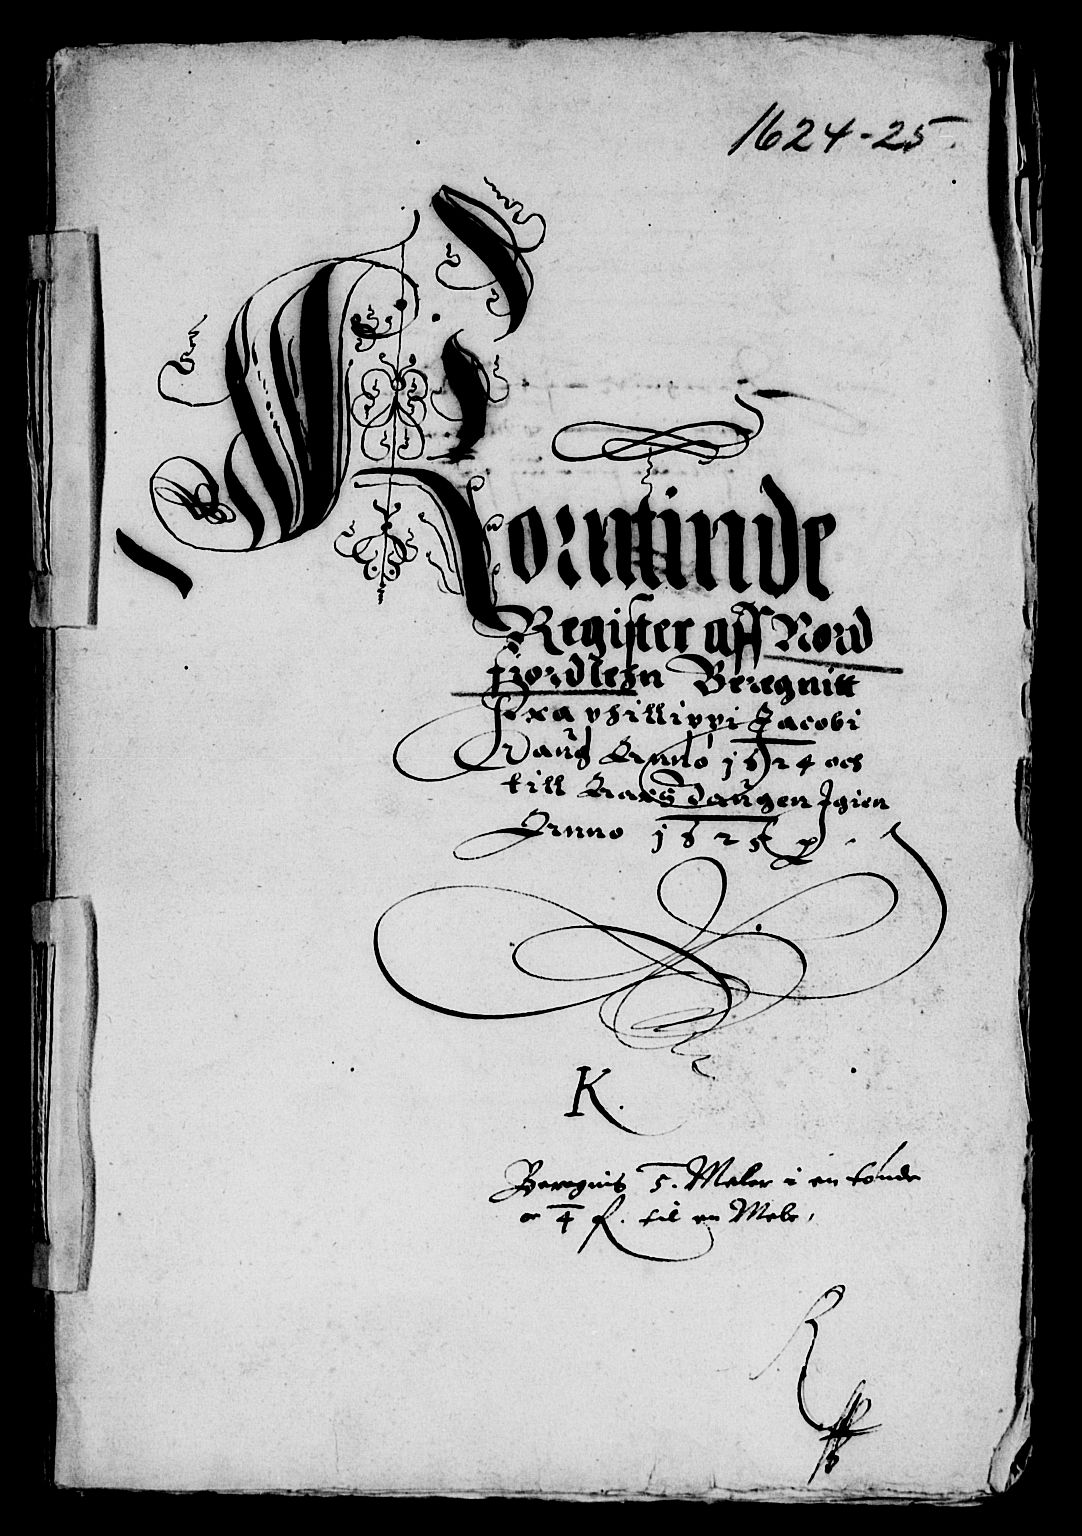 1624-25.
Korntinde
Register aff Nord
fiordlehn Beregnitt
fra philippi Jacobi
daug Anno 1624 och
till Aars daugen Igien
Anno 1625
K.
Beregnis 5. Meler i en tønde
oc 4 til en Mele,
R